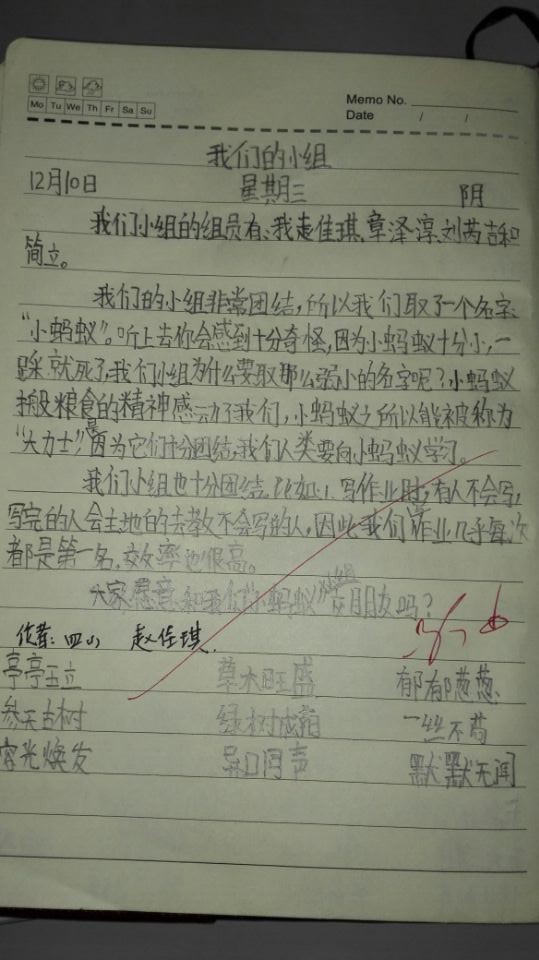 Mo Tu We Th Fr Sa Su
Memo No.
Date / /
我们的小组
12月10日 星期三 阴
我们小组的组员有:我赵佳琪、章泽淳、刘芮吉和
简立。
我们的小组非常团结,所以我们取了一个名字:
“小蚂蚁”。听上去你会感到十分奇怪,因为小蚂蚁十分小,一
踩就死了,我们小组为什么要取那么弱小的名字呢?小蚂蚁
搬粮食的精神感动了我们,小蚂蚁之所以能被称为
“大力士”,是因为它们十分团结,我们人类要向小蚂蚁学习。
我们小组也十分团结。比如:写作业时,有人不会写,
写完的人会主地的去教不会写的人,因此我们作业几乎每次
都是第一名,效率也很高。
大家愿意和我们“小蚂蚁”小组交朋友吗?
作者:四(1) 赵佳琪
亭亭玉立 草木旺盛 郁郁葱葱
参天古树 绿树成荫 一丝不苟
容光焕发 异口同声 默默无闻